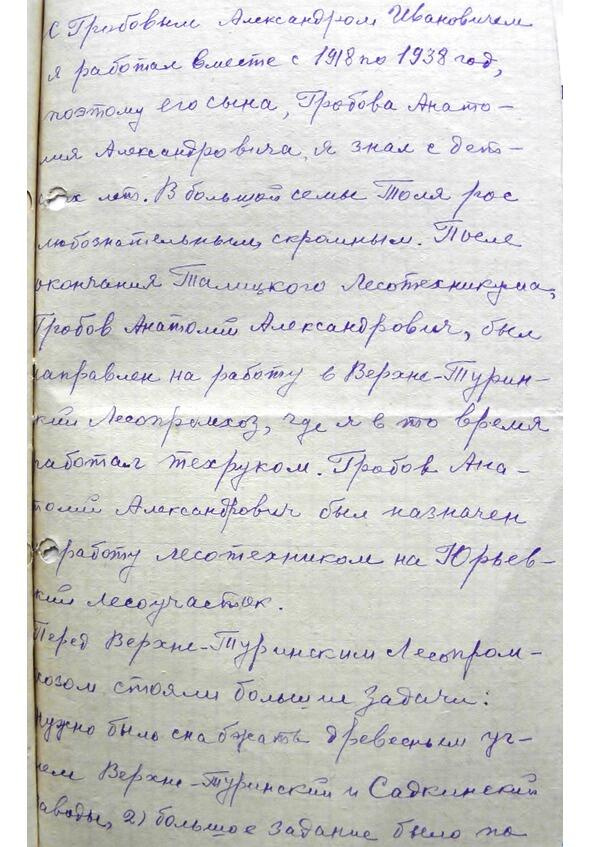 С Гробовым Александром Ивановичем
я работал вместе с 1918 по 1938 год,
поэтому его сына, Гробова Анато-
лия Александровича, я знал с дет-
ских лет. В большой семье Толя рос
любознательным, скромным. После
окончания Талицкого Лесотехникума,
Гробов Анатолий Александрович, был
направлен на работу в Верхне-Турин-
кий Леспромхоз, где я в то время
работал техруком. Гробов Ана-
толий Александрович был назначен
работу лесотехником на Юрьев-
кий лесоучасток.
Перед Верхне-Туринским Леспром-
хозом стояли большие задачи:
нужно было снабжать древесным уг-
лем Верхне-Туринский и Садкинский
заводы, 2) большое задание было по